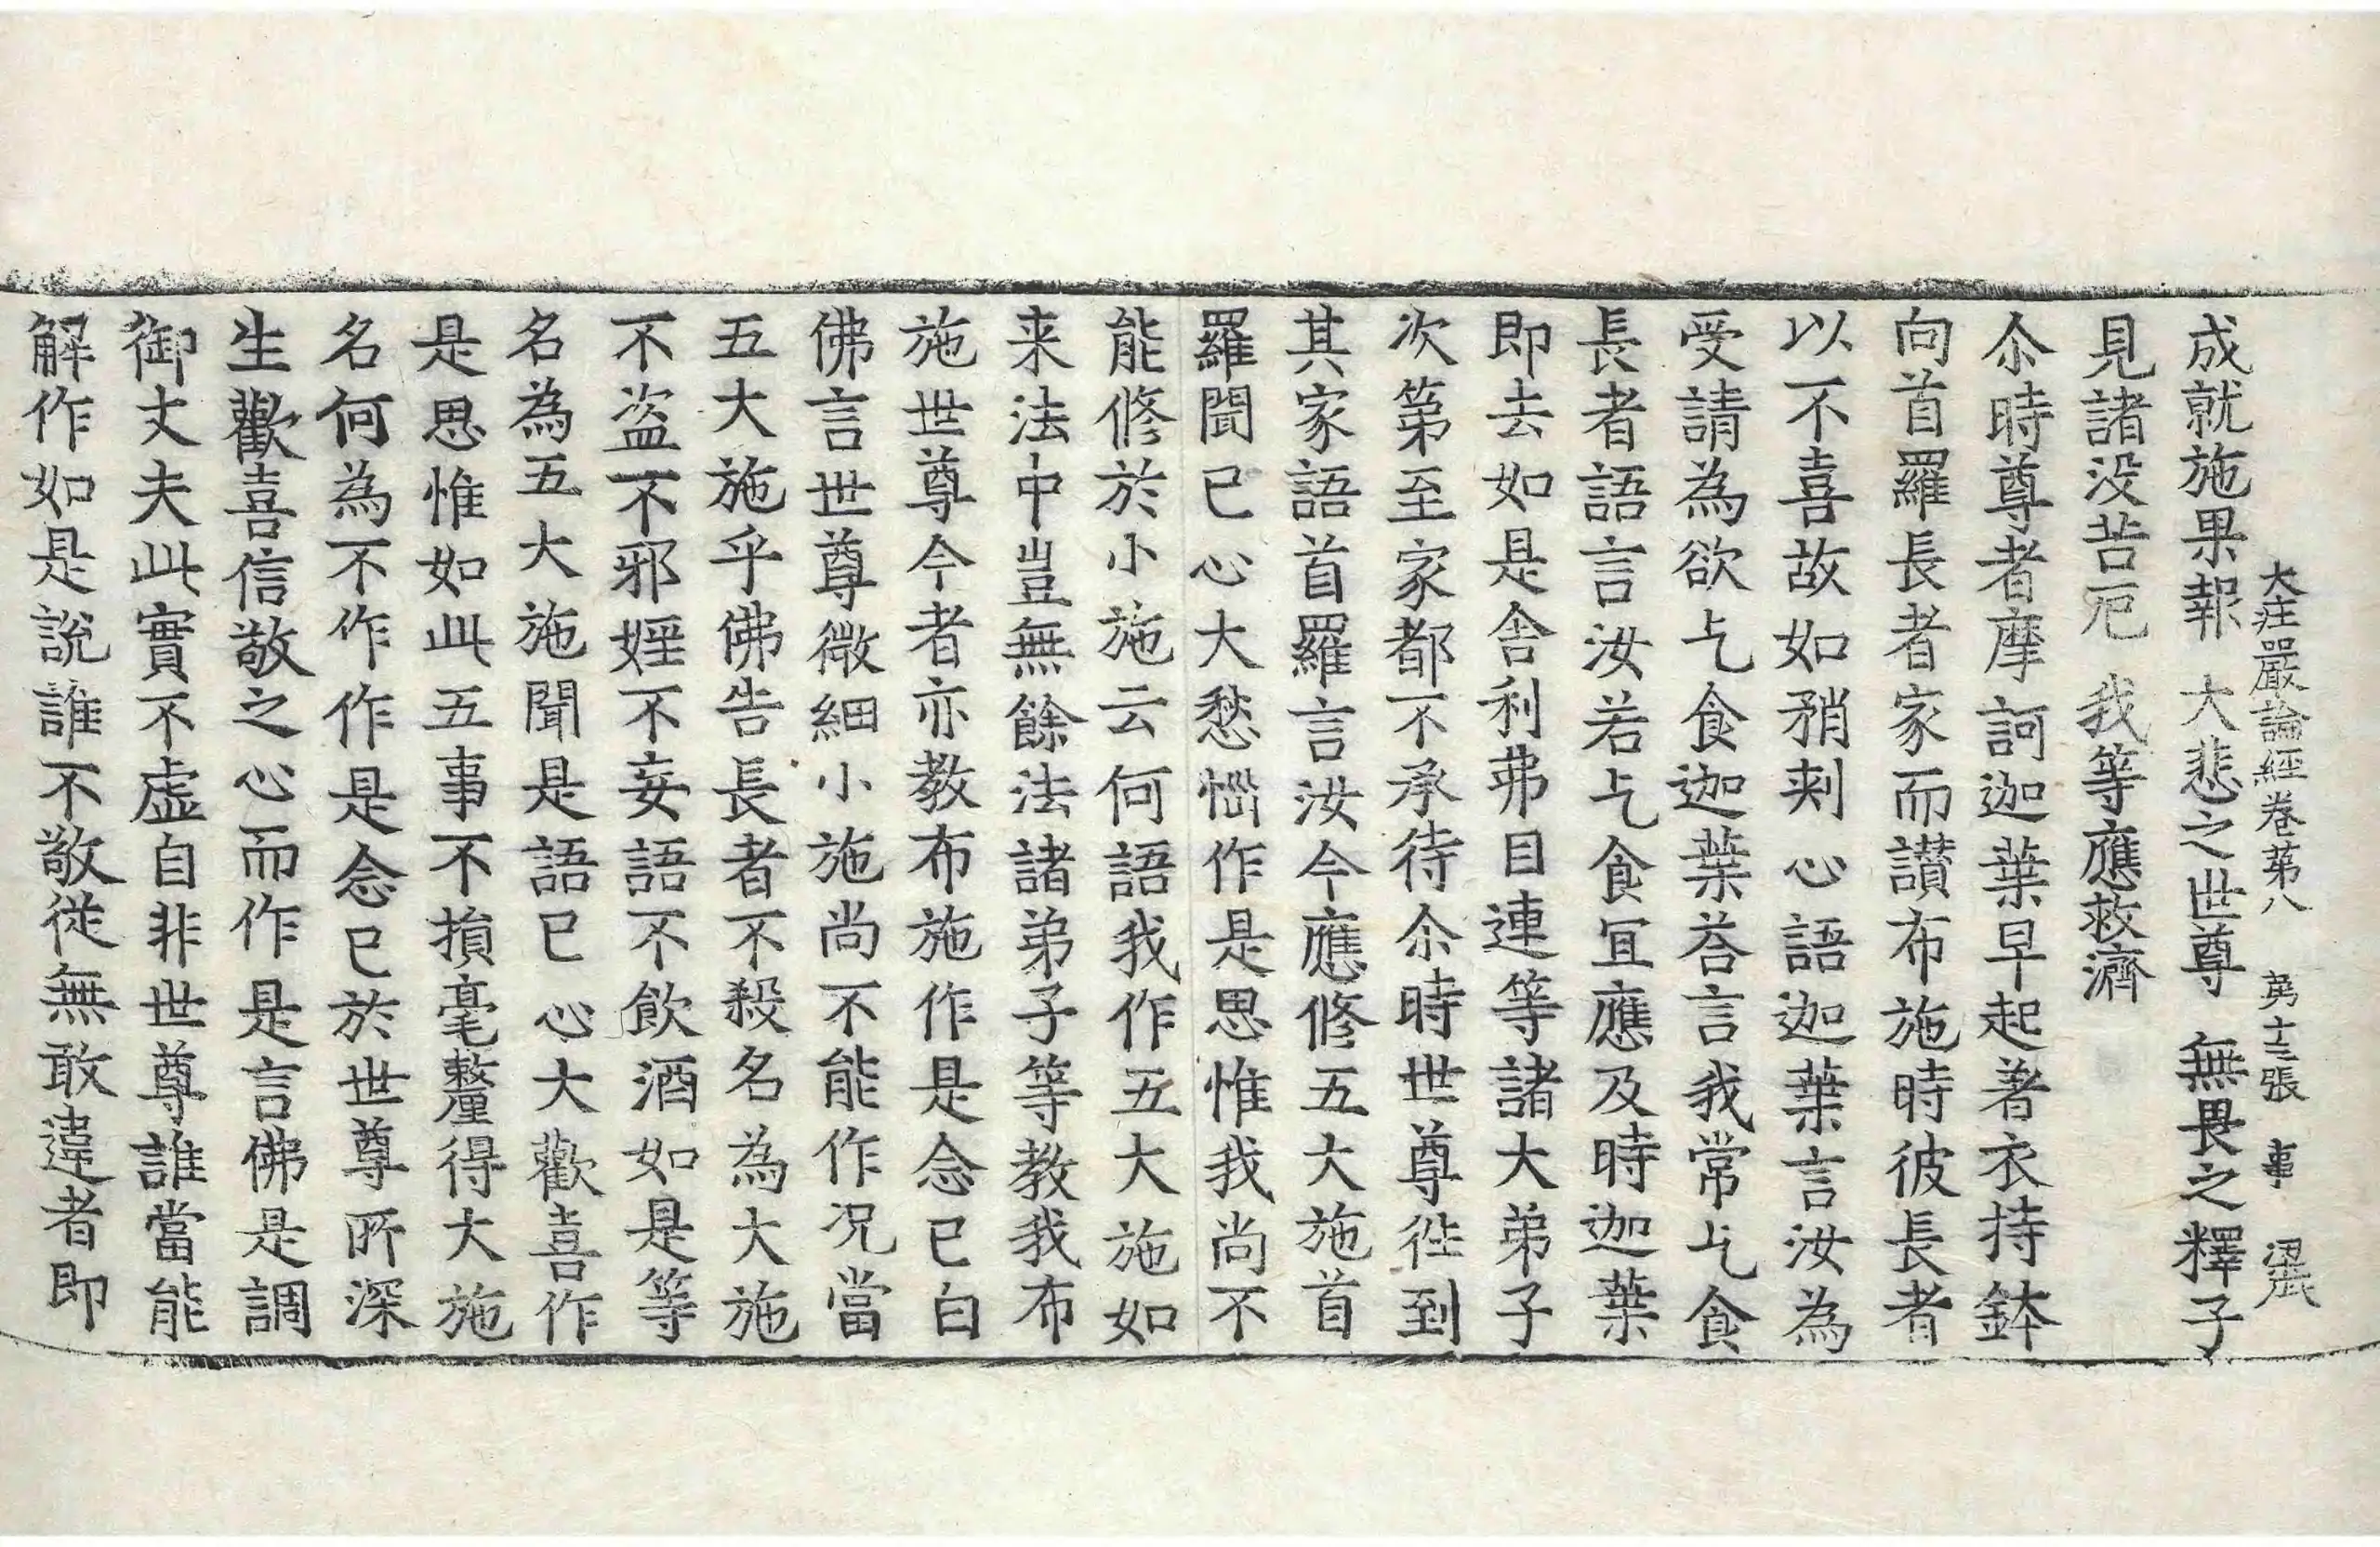 大庄嚴論經卷苐八 苐十三張 事
成就施果報 大悲之世尊 無畏之釋子
見諸没苦厄 我等應救濟
尒時尊者摩訶迦葉早起著衣持鉢
向首羅長者家而讃布施時彼長者
以不喜故如矟刾心語迦葉言汝為
受請為欲乞食迦葉荅言我常乞食
長者語言汝若乞食宜應及時迦葉
即去如是舍利弗目連等諸大弟子
次第至家都不承待尒時世尊徃到
其家語首羅言汝今應修五大施首
羅聞已心大愁惱作是思惟我尚不
能修於小施云何語我作五大施如
来法中豈無餘法諸弟子等教我布
施世尊今者亦教布施作是念已白
佛言世尊微細小施尚不能作况當
五大施乎佛告長者不殺名為大施
不盗不邪婬不妄語不飲酒如是等
名為五大施聞是語已心大歡喜作
是思惟如此五事不損毫釐得大施
名何為不作作是念已於世尊所深
生歡喜信敬之心而作是言佛是調
御丈夫此實不虚自非世尊誰當能
解作如是說誰不敬従無敢違者即